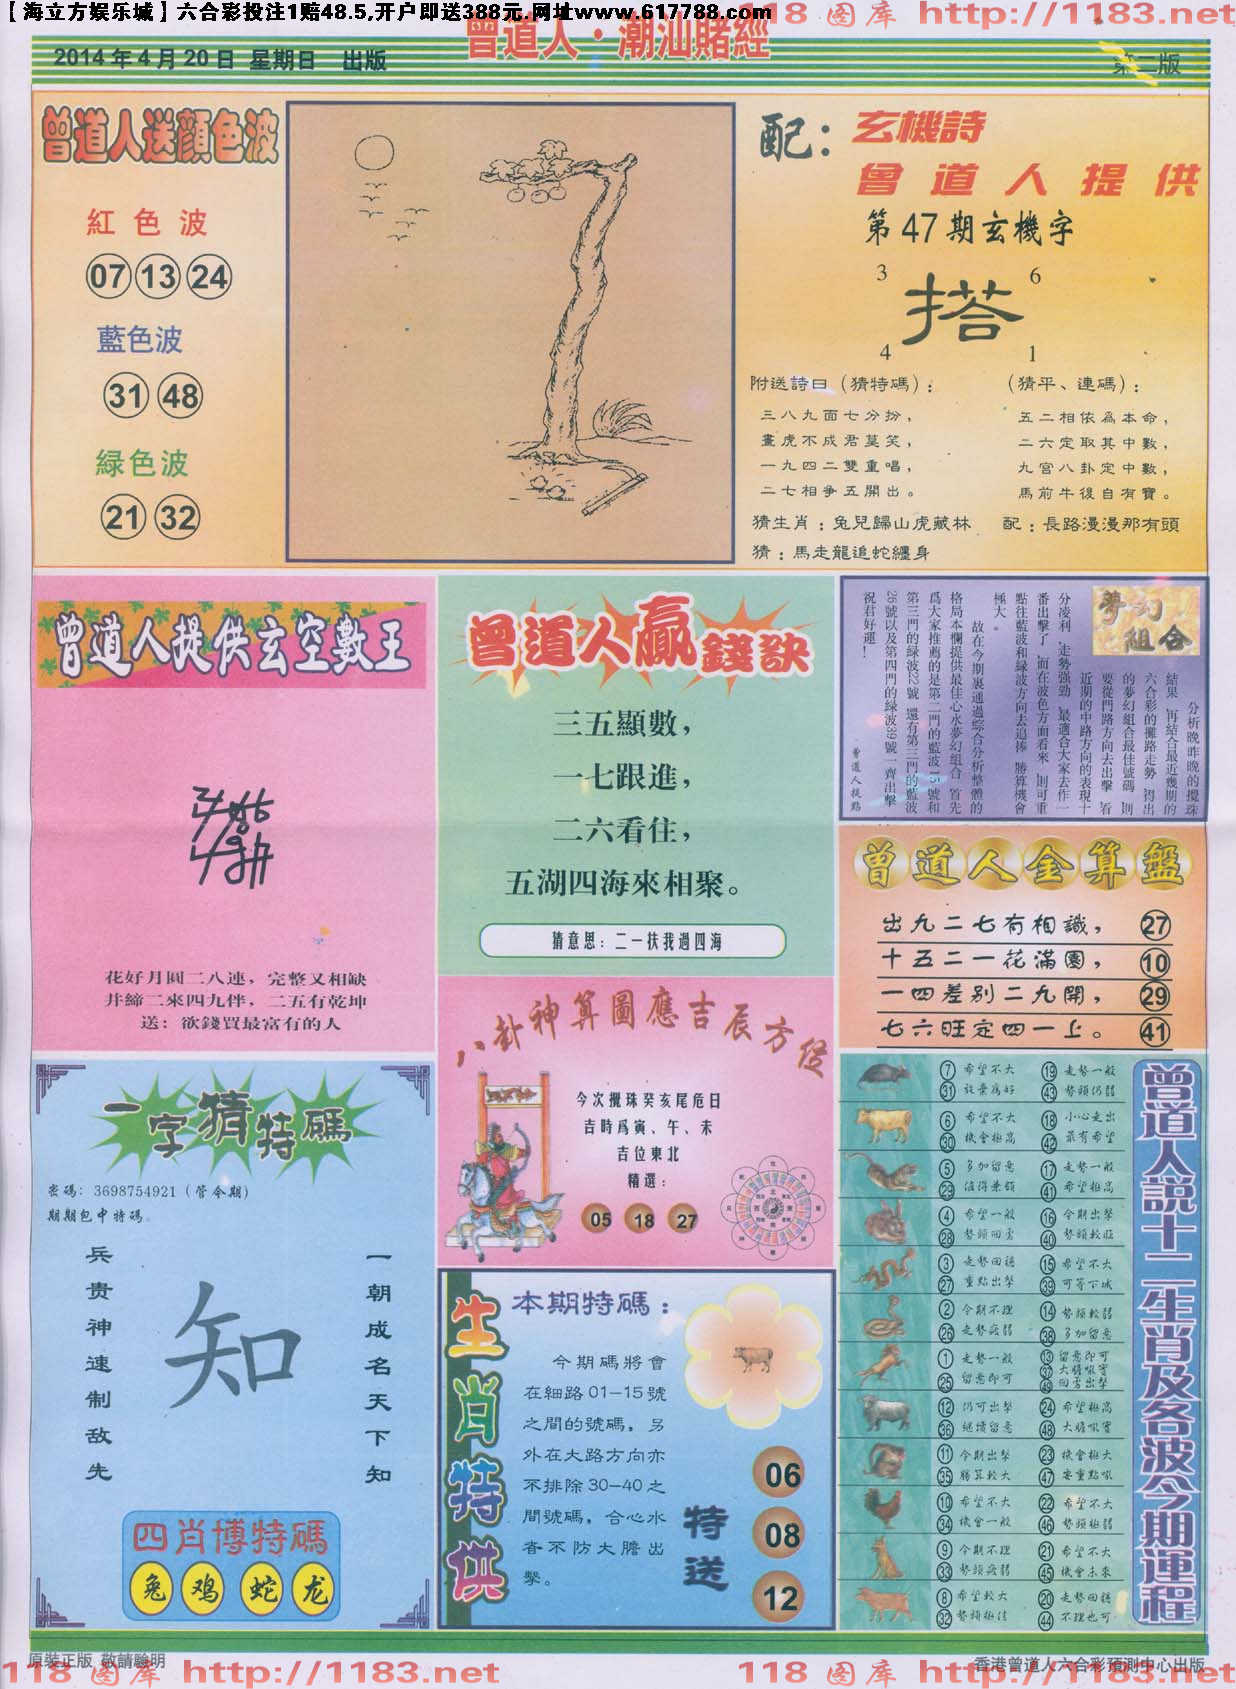 【海立方娱乐城】六合彩投注1赔48.5,开户即送388元.网址www.617788.com
118 图库 http://1183.net
曾道人·潮汕賭經
2014年4月20日 星期日 出版
第二版
曾道人送顏色波
紅色波
07 13 24
藍色波
31 48
緑色波
21 32
配：玄機詩
曾道人提供
第47期玄機字
3 6
搭
4 1
附送詩曰（猜特碼）：
三八九面七分扮，
畫虎不成君莫笑，
一九四二雙重唱，
二七相爭五開出。
（猜平、連碼）：
五二相依為本命，
二六定取其中數，
九宮八卦定中數，
馬前牛後自有寶。
猜生肖：兔兒歸山虎藏林
配：長路漫漫那有頭
猜：馬走龍追蛇纏身
曾道人提供玄空數王
花好月圓二八連，完整又相缺
井締二來四九伴，二五有乾坤
送：欲錢買最富有的人
曾道人贏錢訣
三五顯數，
一七跟進，
二六看住，
五湖四海來相聚。
猜意思：二一扶我過四海
夢幻組合
分析晚昨晚的攪珠
結果，再結合最近幾期的
六合彩的攤路走勢，得出
的夢幻組合最佳號碼，則
要從門路方向去出擊，看
近期的中路方向的表現十
分凌利，走勢強勁，最適合大家去作一
番出擊了，而在波色方面看來，則可重
點往藍波和緑波方向去追捧，勝算機會
極大。
故在今期裏通過綜合分析整體的
格局本欄提供最佳心水夢幻組合，首先
爲大家推薦的是第二門的藍波15號和
第三門的緑波22號，還有第三門的藍波
26號以及第四門的緑波39號一齊出擊，
祝君好運！
曾道人提點
曾道人金算盤
出九二七有相識， 27
十五二一花滿園， 10
一四差别二九開， 29
七六旺定四一上。 41
一字猜特碼
密碼：3698754921（管今期）
期期包中特碼。
一朝成名天下知
知
兵贵神速制敌先
四肖博特碼
兔 鸡 蛇 龙
八卦神算圖應吉辰方位
今次攪珠癸亥尾危日
吉時爲寅、午、未
吉位東北
精選：
05 18 27
生肖特供
本期特碼：
今期碼將會
在細路01-15號
之間的號碼，另
外在大路方向亦
不排除30-40之
間號碼，合心水
者不防大膽出
擊。
特送
06
08
12
曾道人説十二生肖及各波今期運程
7 希望不大 19 走勢一般
31 放棄爲好 43 勢頭仍弱
6 希望不大 18 小心走出
30 機會極高 42 最有希望
5 多加留意 17 走勢一般
29 值得兼顧 41 希望極高
4 希望一般 16 今期出擊
28 勢頭回勇 40 勢頭較旺
3 走勢回穩 15 希望不大
27 重點出擊 39 可等下城
2 今期不理 14 勢頭較弱
26 走勢疲弱 38 多加留意
1 走勢一般 13 留意即可
25 留意即可 37 大膽吼實
49 回勇出擊
12 仍可出擊 24 希望極高
36 繼續留意 48 大膽吼實
11 今期出擊 23 機會極大
35 勝算較大 47 要重點吼
10 希望不大 22 希望不大
34 機會一般 46 勢頭極弱
9 今期不理 21 希望不大
33 勢頭疲弱 45 機會未來
8 希望較大 20 走勢回穩
32 勢頭極佳 44 不理也可
原裝正版 敬請聰明
香港曾道人六合彩預測中心出版
118 图库 http://1183.net
118 图库 http://1183.net